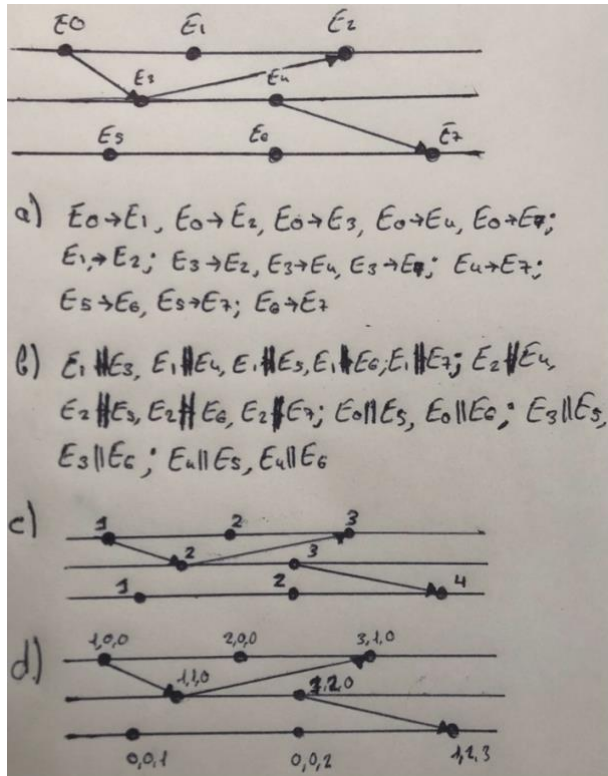 E0 E1 E2
E3 E4
E5 E6 E7
a) E0→E1, E0→E2, E0→E3, E0→E4, E0→E7;
E1→E2; E3→E2, E3→E4, E3→E7; E4→E7;
E5→E6, E5→E7; E6→E7
b) E1∥E3, E1∥E4, E1∥E5, E1∥E6, E1∥E7; E2∥E4,
E2∥E5, E2∥E6, E2∥E7; E0∥E5, E0∥E6; E3∥E5,
E3∥E6; E4∥E5, E4∥E6
c) 1 2 3
2 3
1 2 4
d) 1,0,0 2,0,0 3,1,0
1,1,0 1,2,0
0,0,1 0,0,2 1,2,3